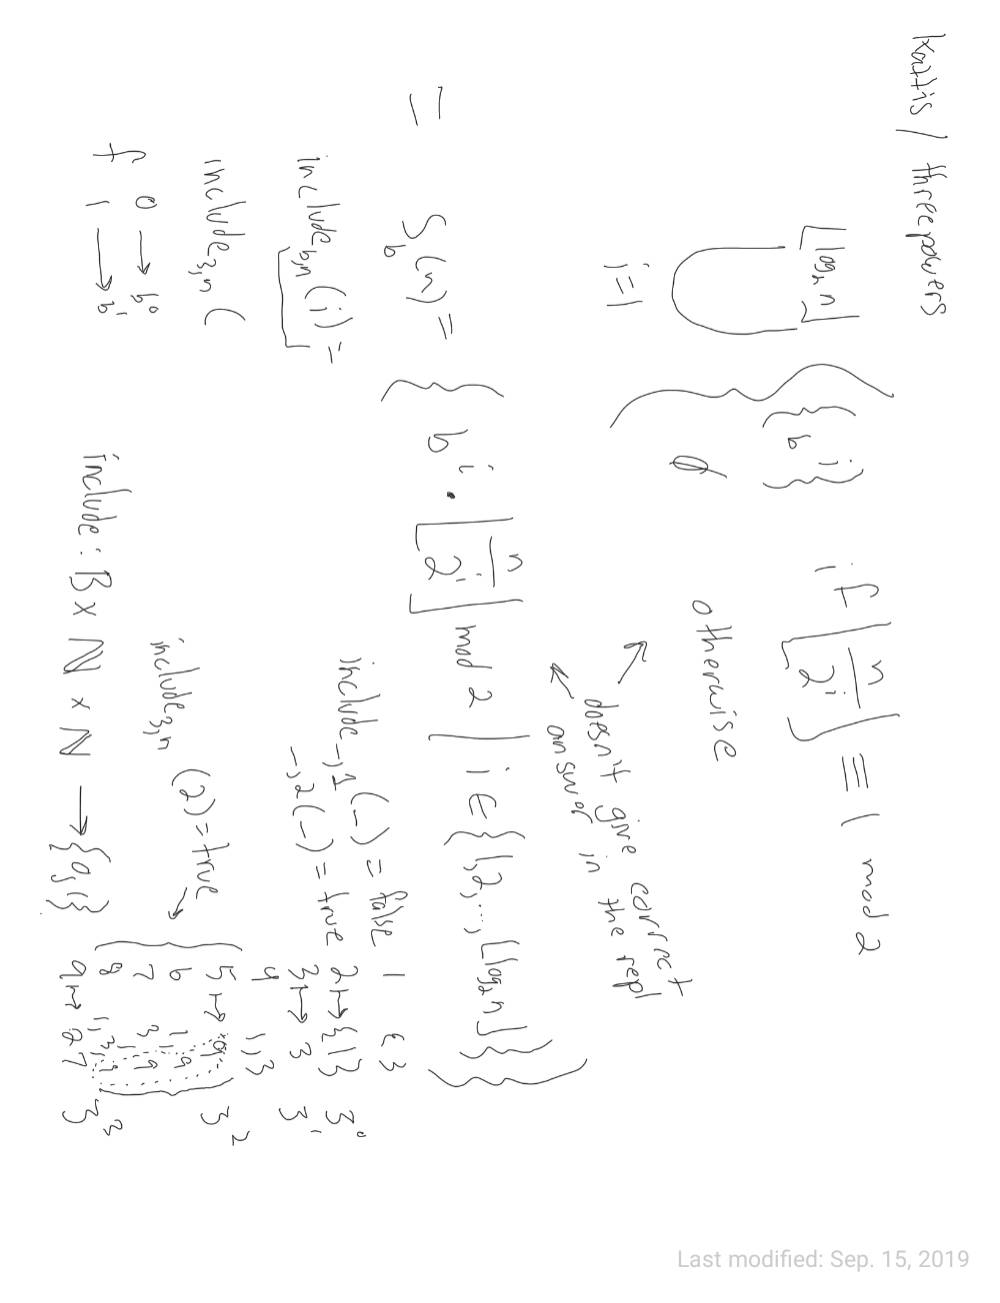 kattis / threepowers
⌊log₂ n⌋
⋃
i=1
{ {b^i} if ⌊n/2^i⌋ ≡ 1 mod 2
∅ otherwise
↖ doesn't give correct
↙ answer in the repl
= S_b(n) = { b^i · ⌊n/2^i⌋ mod 2 | i ∈ {1,2,...,⌊log₂n⌋} }
include_{b,n}(i) =
include_{3,n}(
f 0 → b^0
1 → b^1
include_{-,1}(_) = false
_{-,2}(_) = true
include_{3,n}(2) = true →
include: B × ℕ × ℕ → {0,1}
1 ε 3
2 ↦ {1} 3^0
3 ↦ 3 3^1
4 1,3
5 ↦ 9 3^2
6 1,9
7 3,9
8 1,3,9
9 ↦ 27 3^3
Last modified: Sep. 15, 2019